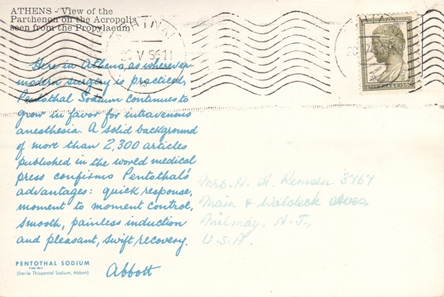 ATHENS - View of the
Parthenon on the Acropolis
seen from the Propylaeum
V 56 11
Here in Athens, as wherever
modern surgery is practiced,
Pentothal Sodium continues to
grow in favor for intravenous
anesthesia. A solid background
of more than 2,300 articles
published in the world medical
press confirms Pentothal's
advantages: quick response,
moment to moment control,
smooth, painless induction
and pleasant, swift recovery.
Abbott
PENTOTHAL SODIUM
(Sterile Thiopental Sodium, Abbott)
Mrs. H. A. Remsen
Main &
Milmay, N. J.,
U.S.A.